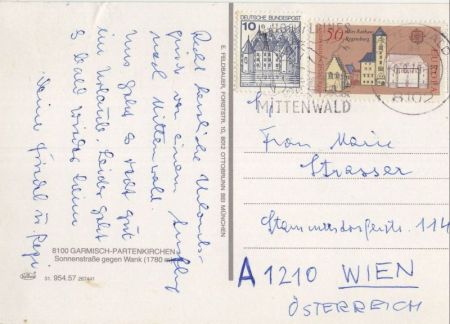 Recht herzliche Urlaubs-
grüße von einem Ausflug
nach Mittenwald.
Uns geht es recht gut
im Urlaub. Leider geht
es bald wieder heim
8100 GARMISCH-PARTENKIRCHEN
Sonnenstraße gegen Wank (1780 m)
51. 954.57
E. FELDBAUER, FORSTSTR. 10, 8012 OTTOBRUNN BEI MÜNCHEN
DEUTSCHE BUNDESPOST
10
50
Altes Rathaus
Regensburg
MITTENWALD
8102
Frau Marie
Strasser
Stammersdorferstr. 114
A 1210 WIEN
ÖSTERREICH